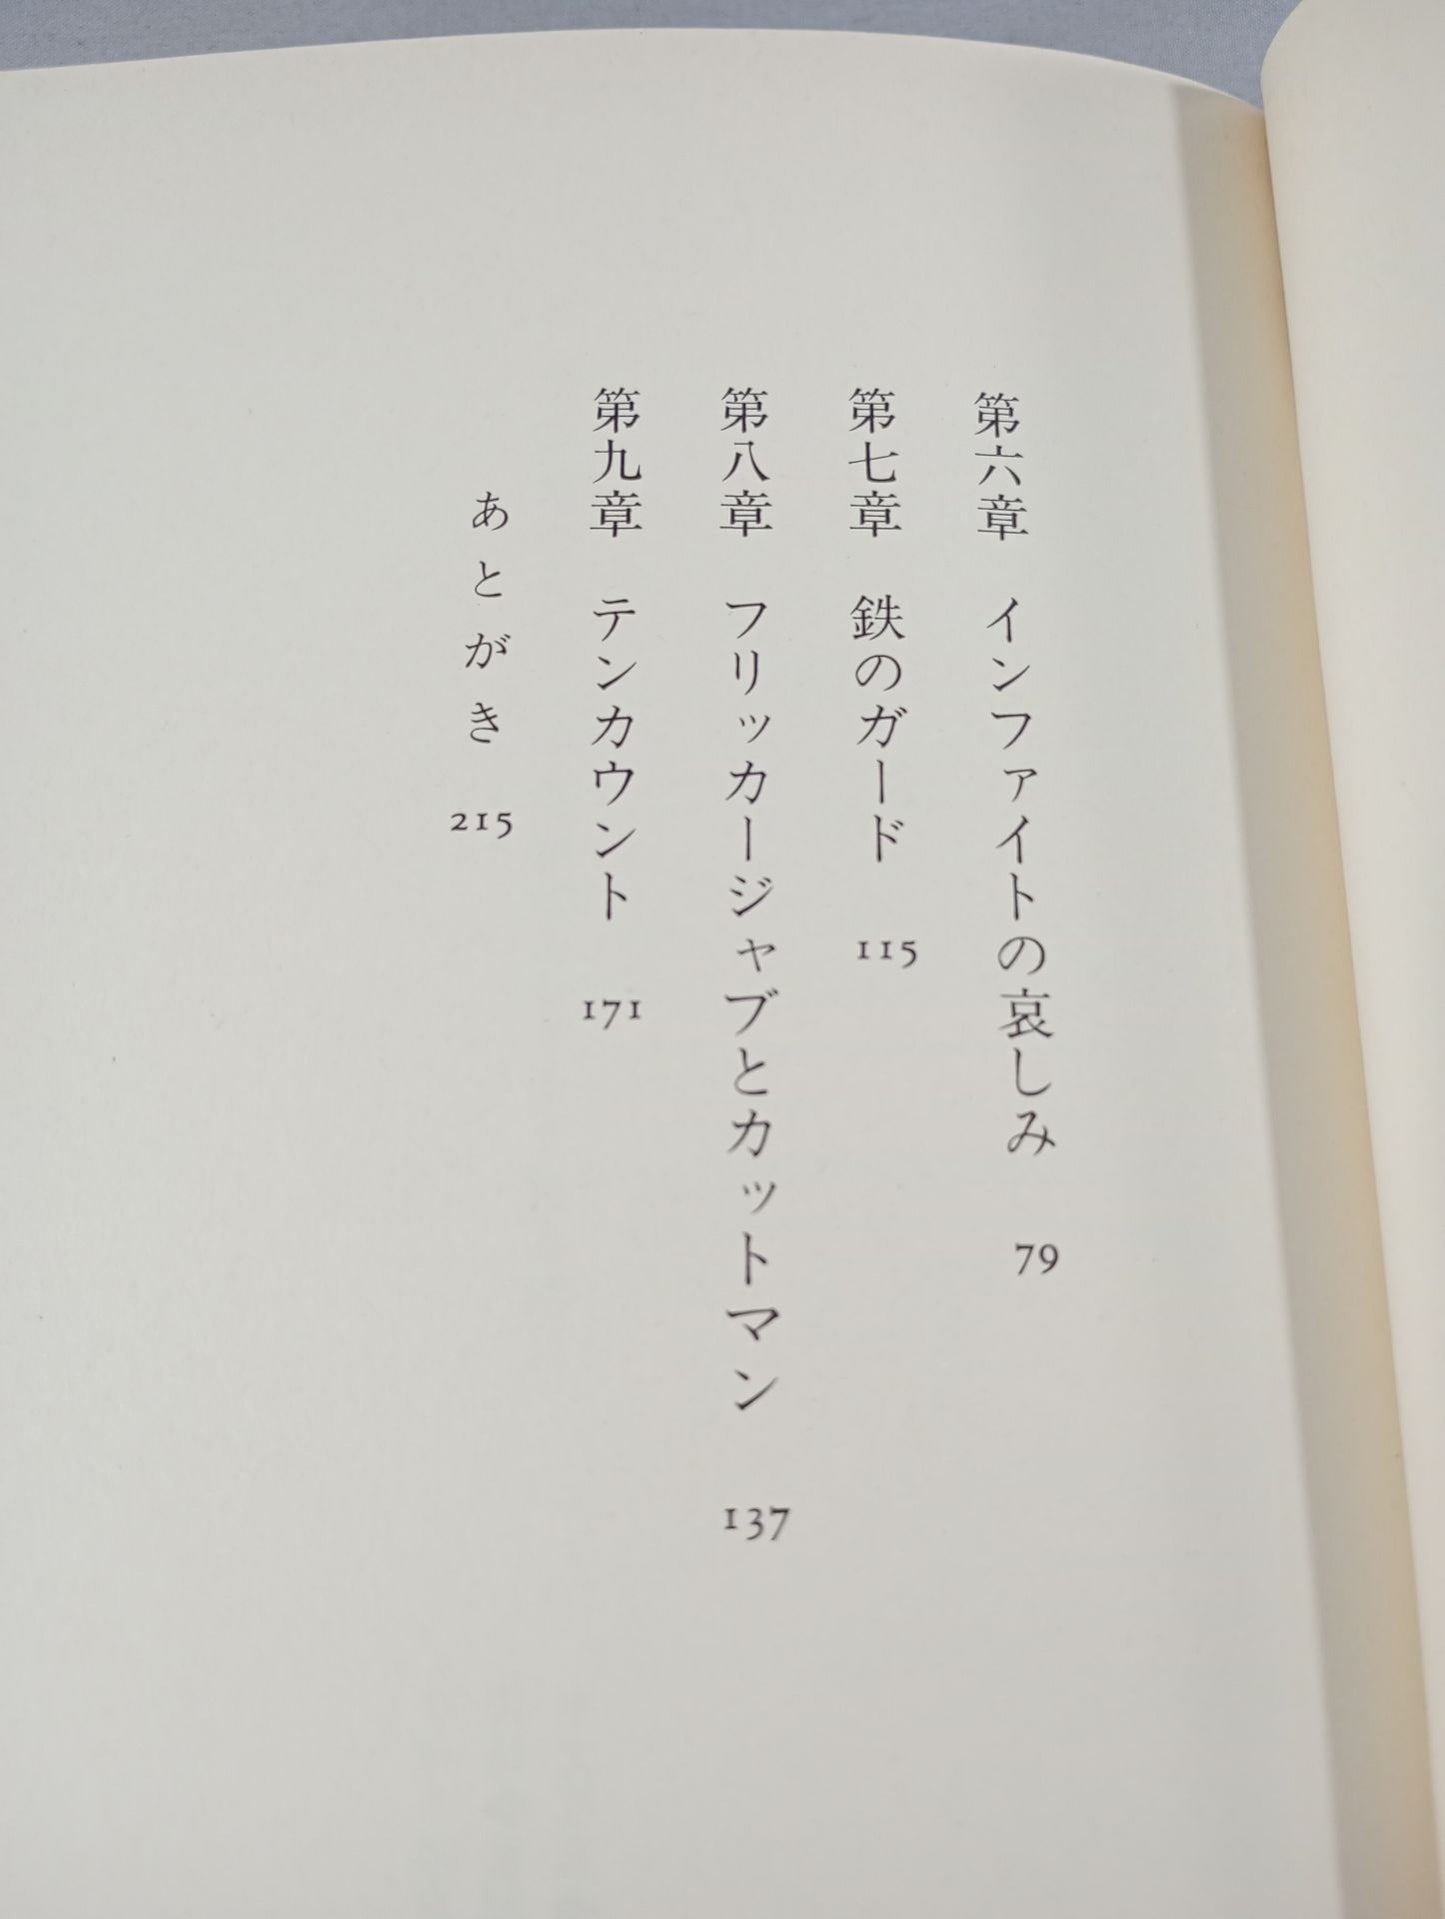 第六章 インファイトの哀しみ 79
第七章 鉄のガード 115
第八章 フリッカージャブとカットマン 137
第九章 テンカウント 171
あとがき 215